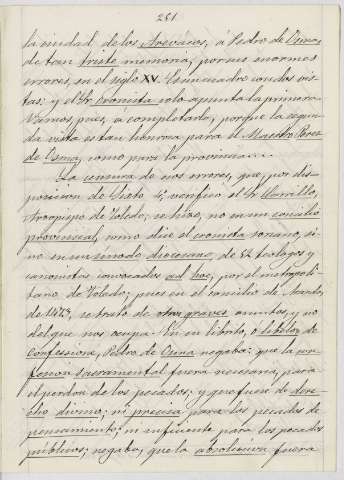 261
la ciudad de los Arevacos, á Pedro de Osma,
de tan triste memoria, por sus enormes
errores, en el siglo XV. Es un cuadro con dos vis-
tas: y el Sr. cronista solo apunta la primera.
Vamos, pues, a completarlo, porque la segun-
da vista es tan honrosa para el Maestro Perez
de Osma, como para la provincia.
La censura de sus errores, que, por dis-
posicion de Sixto 4º, verificó el Sr. Carrillo,
Arzobispo de Toledo, se hizo, no en un concilio
provincial, como dice el cronista soriano, si-
no en un sinodo diocesano, de 52 teólogos y
canonistas convocados ad hoc, por el metropoli-
tano de Toledo; pues en el concilio de Aranda,
de 1473, se trató de otros graves asuntos, y no
del que nos ocupa. En un librito, ó libelo, de
Confessione, Pedro de Osma negaba: que la con-
fesion sacramental fuera necesaria, para
el perdon de los pecados; y que fuese de dere-
cho divino; ni precisa para los pecados de
pensamiento; ni suficiente para los pecados
públicos; negaba, que la absolucion fuera